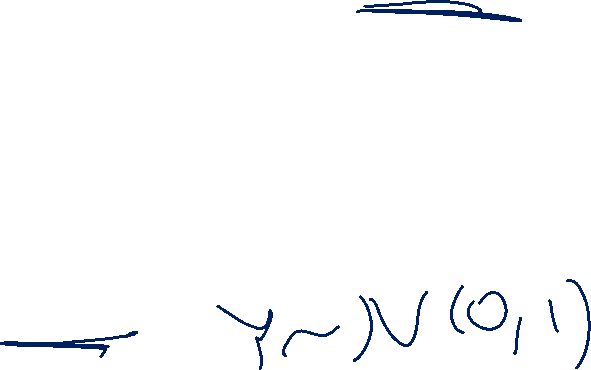 Y ~ N(0,1)